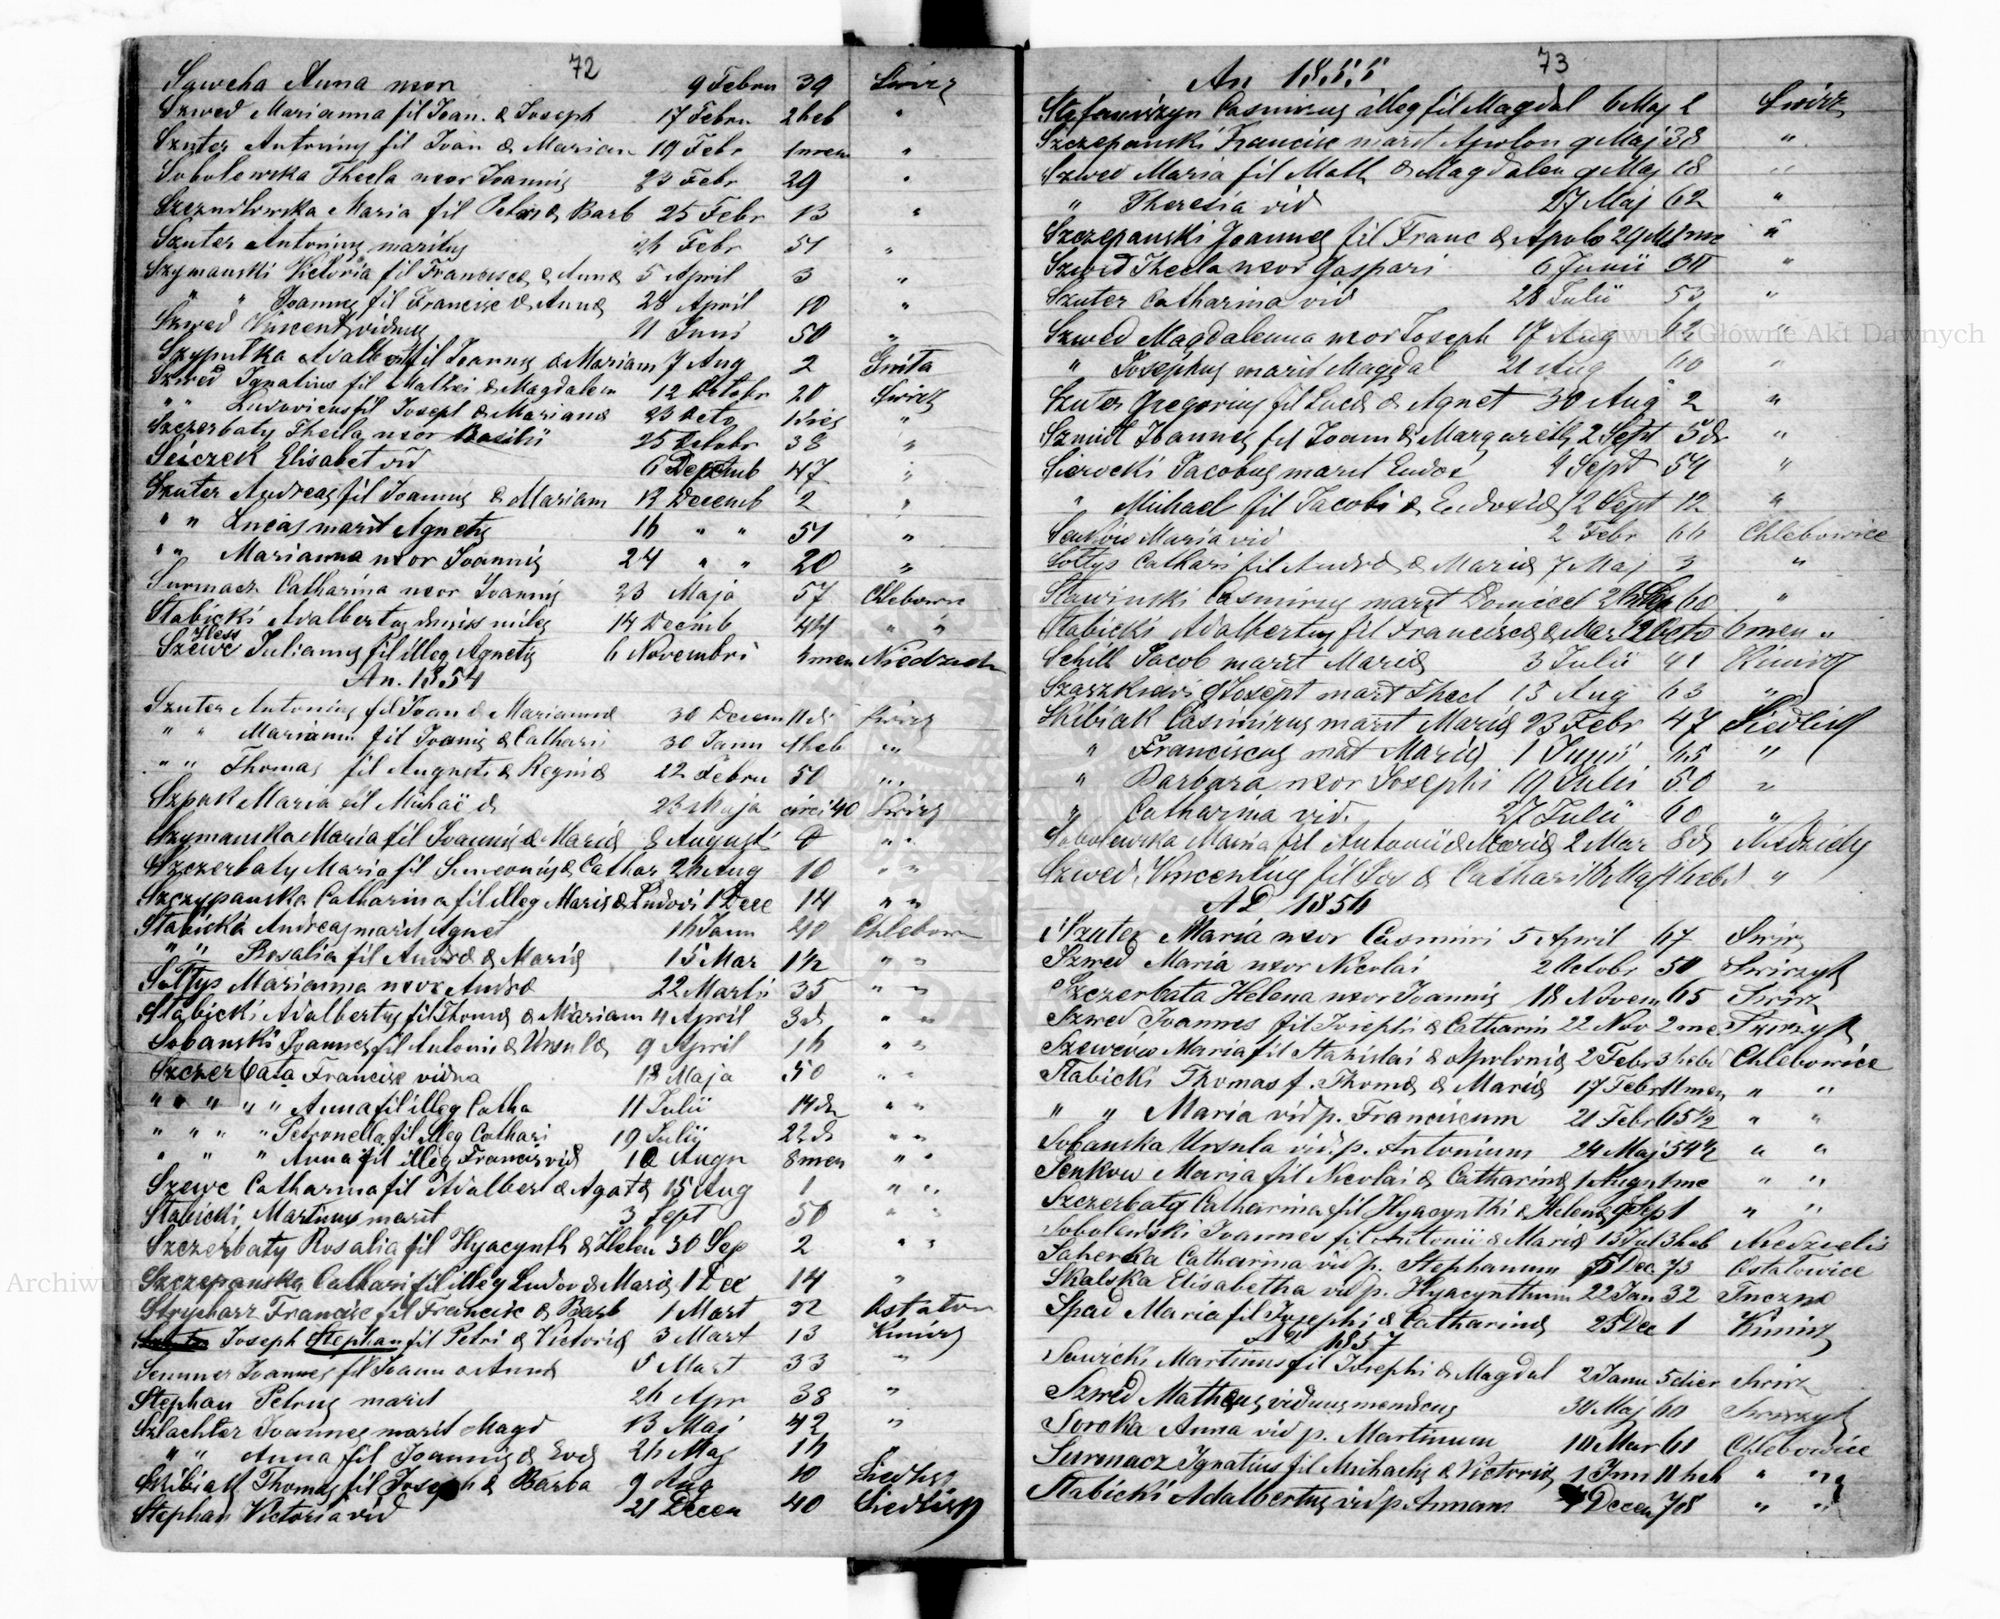 72
Saweha Anna uxor 9 Febru 39 Swirz
Szwed Marianna fil Ioan. & Joseph 17 Febru 2 heb "
Szuter Antonius fil Ioan & Marian 19 Febr 1 men "
Sobolewska Thecla uxor Ioannis 23 Febr 29 "
Maria fil Petri & Barb 25 Febr 13 "
Szuter Antonius maritus 26 Febr 51 "
Szymanski Victoria fil Francisca & Anna 5 April 3 "
" " Joannes fil Francisc & Anna 28 April 10 "
Szwed Vincent viduus 11 Juni 50 "
Szypułka Adalbert fil Ioannis & Mariam 7 Aug 2
Szwed Ignatius fil Mathei & Magdalen 12 Octobr 20 Swirz
" " Ludovicus fil Joseph & Mariana 23 Octo "
Szczerbaty Thecla uxor Basilii 25 Octobr 38 "
Elisabet vid 6 Decemb 47 "
Szuter Andreas fil Ioannis & Mariam 12 Decemb 2 "
" " Lucas marit Agnetis 16 " " 51 "
" " Marianna uxor Ioannis 24 " " 20 "
Surmacz Catharina uxor Ioannis 23 Maja 57 Chlebow
Słabicki Adalbertus miles 14 Decemb 44 " "
Szewc Julianus fil illeg Agnetis 6 Novembri men
An. 1854
Szuter Antonius fil Ioan & Marianna 30 Decem 11 di Swirz
" " Mariam fil Ioanis & Cathari 30 Jann 1 heb " "
" " Thomas fil Augusti & Regina 22 Febru 50 " "
Szpak Maria fil 23 Maja circi 40 Swirz
Szymanska Maria fil Ioannis & Maria 8 Augusti " "
Szczerbaty Maria fil Simeonis & Cathar 26 Aug 10 " "
Szczypanska Catharina fil illeg Maria & Ludovi 1 Dece 14 " "
Słabicki Andreas marit Agnet 16 Jann 40 Chlebow
" " Rosalia fil Andrea & Maria 15 Mar 1½ " "
Sołtys Marianna uxor Andrea 22 Martii 35 " "
Słabicki Adalbertus fil Thoma & Mariam 4 April 3 d " "
Sobanski Joannes fil Antonii & Ursula 9 April 16 " "
Szczerbata Francisc vidua 18 Maja 50 " "
" " " " " Anna fil illeg Catha 11 Julii 14 di " "
" " " " Petronella fil illeg Cathari 19 Julii 22 di " "
" " " Anna fil illeg Francis vid 12 Augu 8 men " "
Szewc Catharina fil Adalbert & Agatha 15 Aug 1 " "
Słabicki Martinus marit 3 Sept 50 " "
Szczerbaty Rosalia fil Hyacynth & Helen 30 Sep 2 " "
Szczepanska Cathari fil illeg Ludov & Maria 1 Dec 14 "
Strycharz Francisc fil Francisc & Barb 1 Mart 22 Ostałow
Joseph Stephan fil Petri & Victoria 3 Mart 13 Kimirz
Semmer Ioannes fil Ioann & Anna 6 Mart 33 "
Stephan Petrus marit 26 Apr 38 "
Szlachter Ioannes marit Magd 13 Maj 42 "
" " Anna fil Ioannis & Eva 26 Maj "
Skibiak Thomas fil Joseph & Barba 9 Aug 40 Siedlisk
Stephan Victoria vid 21 Decem 40 Siedlisk
73
An 1855
Stefaniszyn Casimirus illeg fil Magdal 6 Maj 2 Swirz
Szczepanski Francisc marit Apolon 9 Maj 38 "
Szwed Maria fil Math & Magdalen 9 Maj 18 "
" Theresia vid 27 Maj 62 "
Szczepanski Joannes fil Franc & Apolo 29 "
Szwed Thecla uxor Gaspari 6 Junii "
Szuter Catharina vid 28 Julii 53 "
Szwed Magdalenna uxor Joseph 17 Aug 42 "
" Josephus marit Magdal 21 Aug 60 "
Szuter Gregorius fil Luca & Agnet 30 Aug 2 "
Szmidt Ioannes fil Ioann & Margareth 2 Sept 5 di "
Sierocki Jacobus marit Eudoc 9 Sept 54 "
" Michael fil Jacobi & Eudoxia 12 Sept 12 "
Senkow Maria vid 2 Febr 66 Chlebowice
Sołtys Cathari fil Andrea & Maria 7 Maj 3 "
Sławinski Casimirus marit Domicel 60 "
Słabicki Adalbertus fil Francisca & Mar 12 Octo 6 men "
Schill Jacob marit Maria 3 Julii 41 Kimirz
Joseph marit Thecl 15 Aug 63 "
Skibiak Casimirus marit Maria 23 Febr 47 Siedlisk
" Franciscus mat Maria 1 Junii 45 "
" Barbara uxor Josephi 19 Julii 50 "
" Catharina vid. 27 Julii 60 "
Sobolewska Maria fil Antonii & Maria 2 Mar 8 d
Szwed Vincentius fil Jos & Cathari 16 Maj 1 hebd "
AD 1856
Szuter Maria uxor Casimiri 5 April 67 Swirz
Szwed Maria uxor Nicolai 2 Octobr 50 Swirzyk
Szczerbata Helena uxor Ioannis 18 Novem 65 Swirz
Szwed Ioannes fil Josephi & Catharin 22 Nov 2 me Swirzyk
Szewców Maria fil Stanislai & Apolonia 2 Febr 3 hebd Chlebowice
Słabicki Thomas f. Thoma & Maria 17 Febr 11 men " "
" " Maria vid p. Franciscum 21 Febr 65½ " "
Sobanska Ursula vid p. Antonium 24 Maj 54½ " "
Senkow Maria fil Nicolai & Catharina 1 Augu 1 me " "
Szczerbaty Catharina fil Hyacynthi & Helena 9 Sept 1 " "
Sobolewski Joannes fil Antonii & Maria 13 Jul 3 heb
Catharina vid p. Stephanum 5 Dec 73 Ostałowice
Skalska Elisabetha vid p. Hyacynthum 22 Jan 32
Spad Maria fil Josephi & Catharina 25 Dec 1 Kimirz
AD 1857
Sawicki Martinus fil Josephi & Magdal 2 Janu 5 dier Swirz
Szwed Matheus viduus mendicus 30 Maj 60 Swirzyk
Soroka Anna vid p. Martinum 10 Mar 61 Chlebowice
Surmacz Ignatius fil Michaelis & Victoria 1 Jun 11 heb " "
Słabicki Adalbertus vid p Annam 4 Decem 78 " "
Archiwum Główne Akt Dawnych